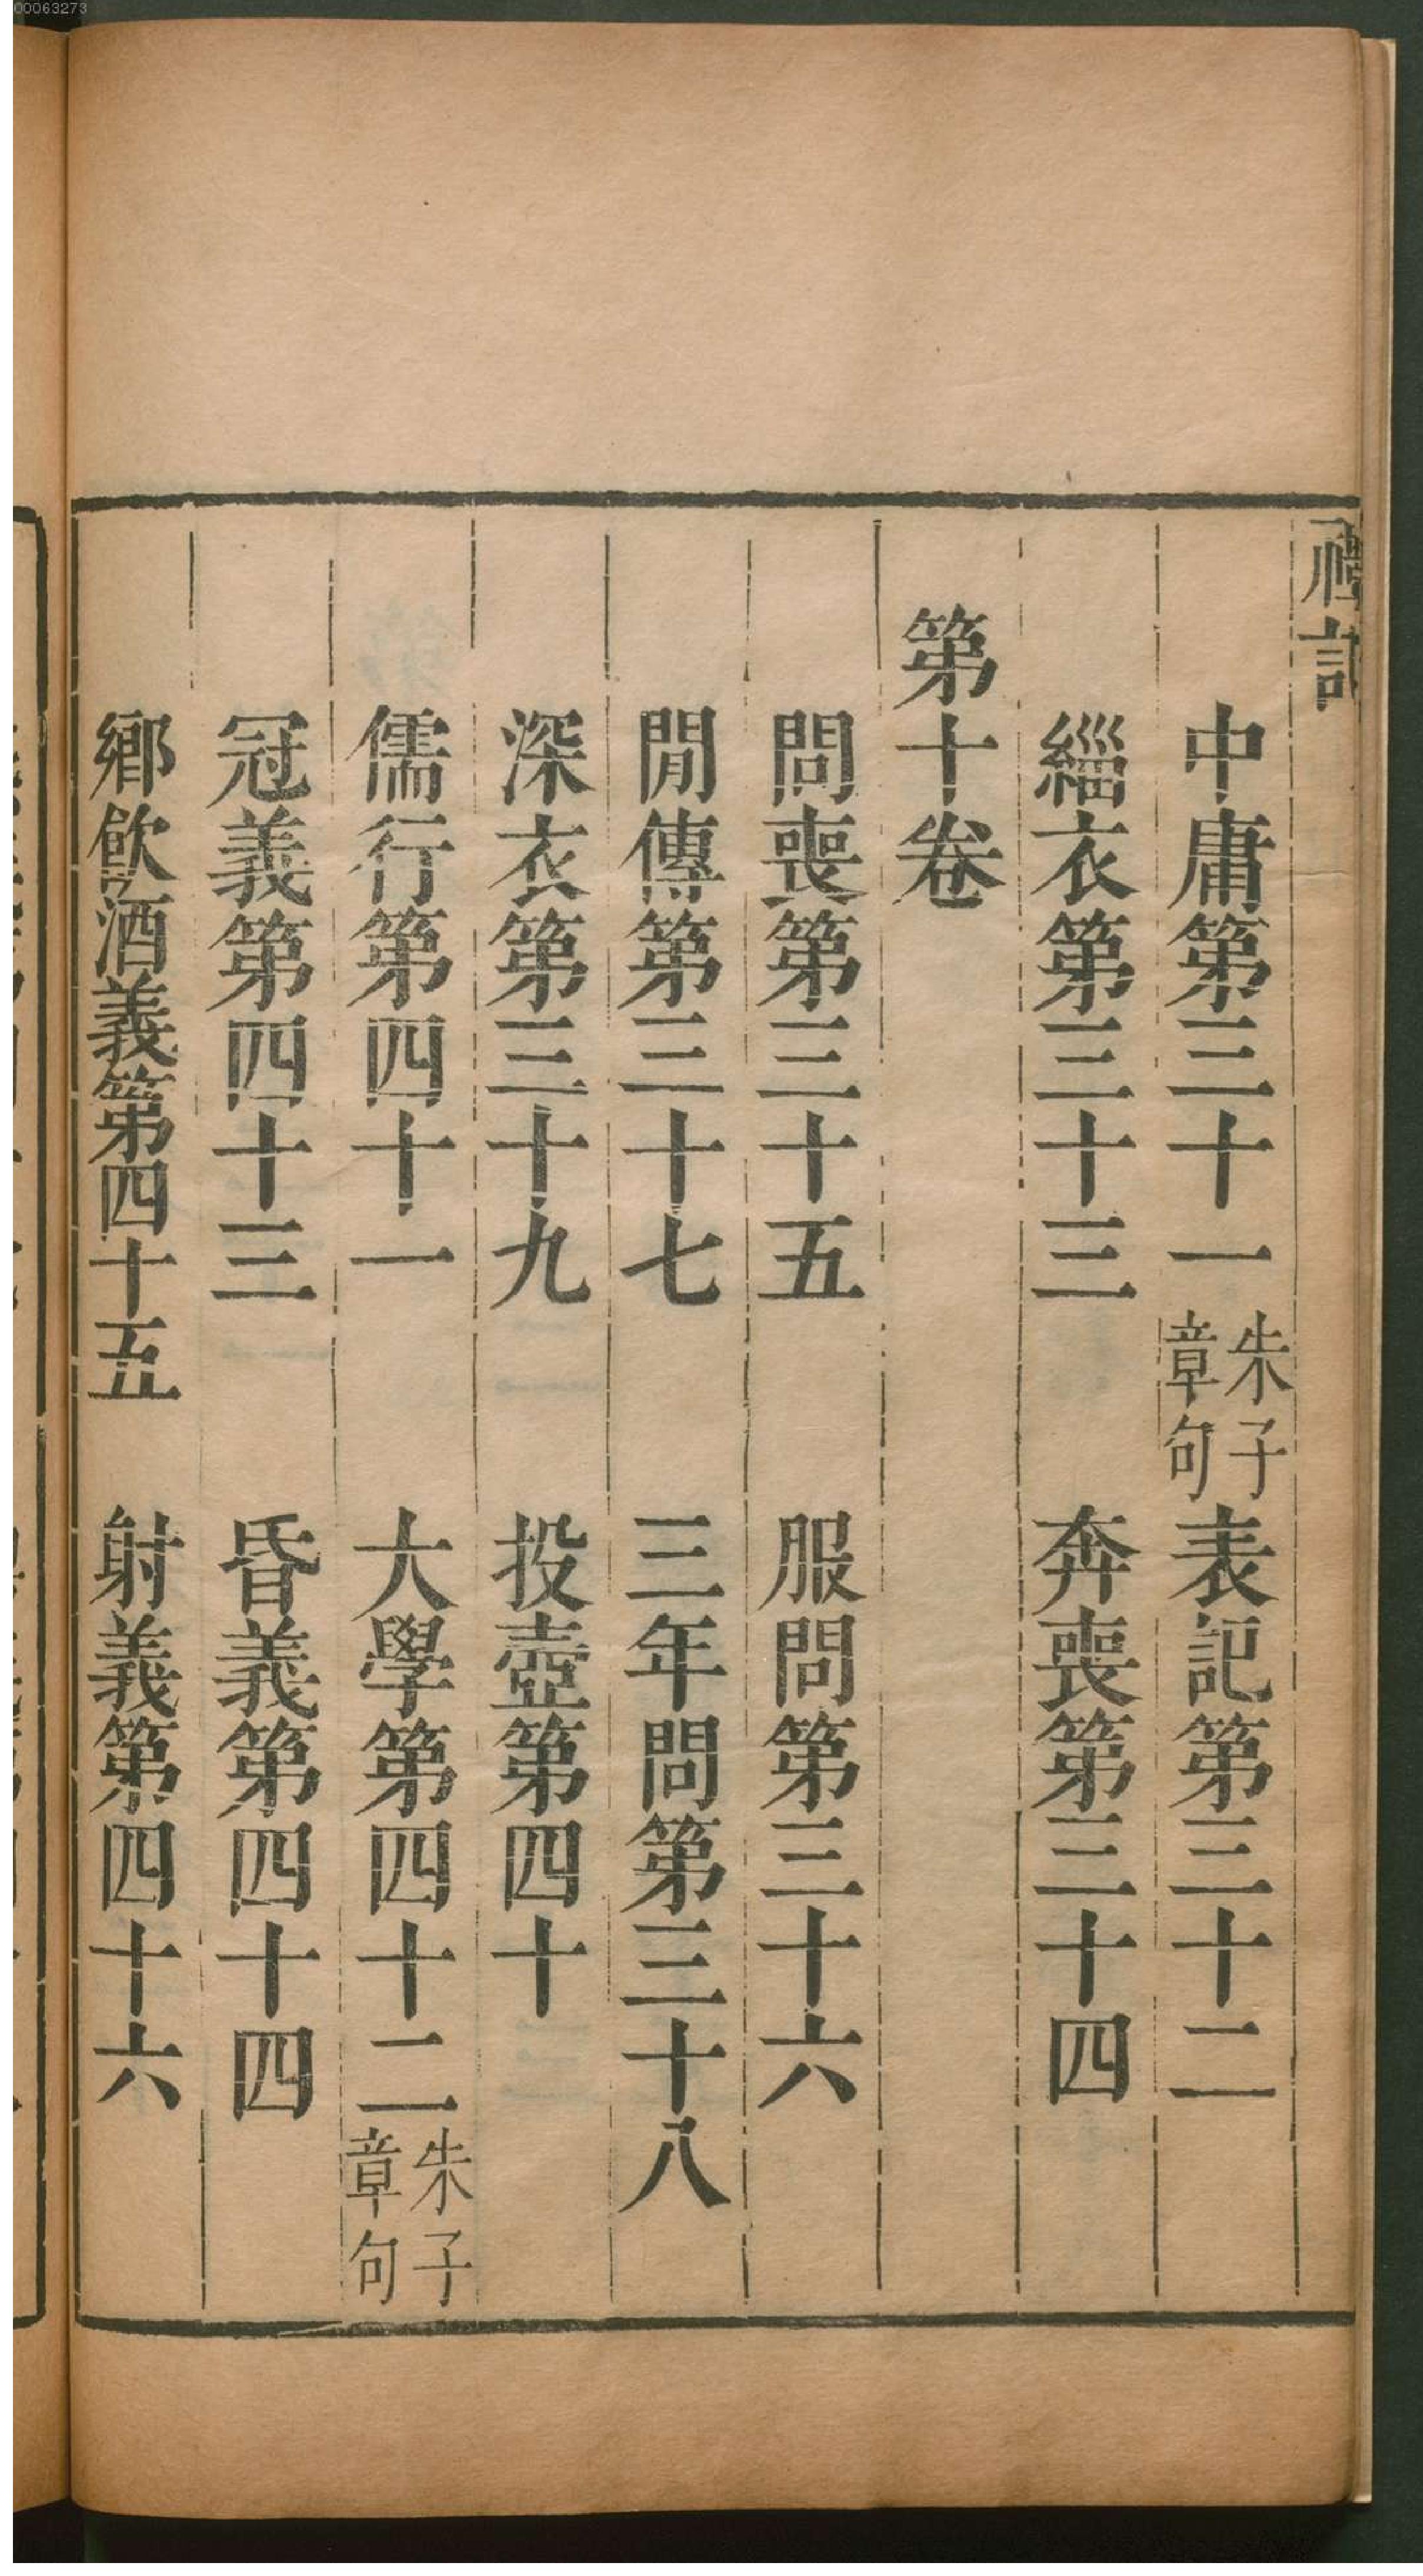 00063273
禮記
中庸第三十一 朱子章句 表記第三十二
緇衣第三十三 奔喪第三十四
第十卷
問喪第三十五 服問第三十六
閒傳第三十七 三年問第三十八
深衣第三十九 投壺第四十
儒行第四十一 大學第四十二 朱子章句
冠義第四十三 昏義第四十四
鄉飲酒義第四十五 射義第四十六